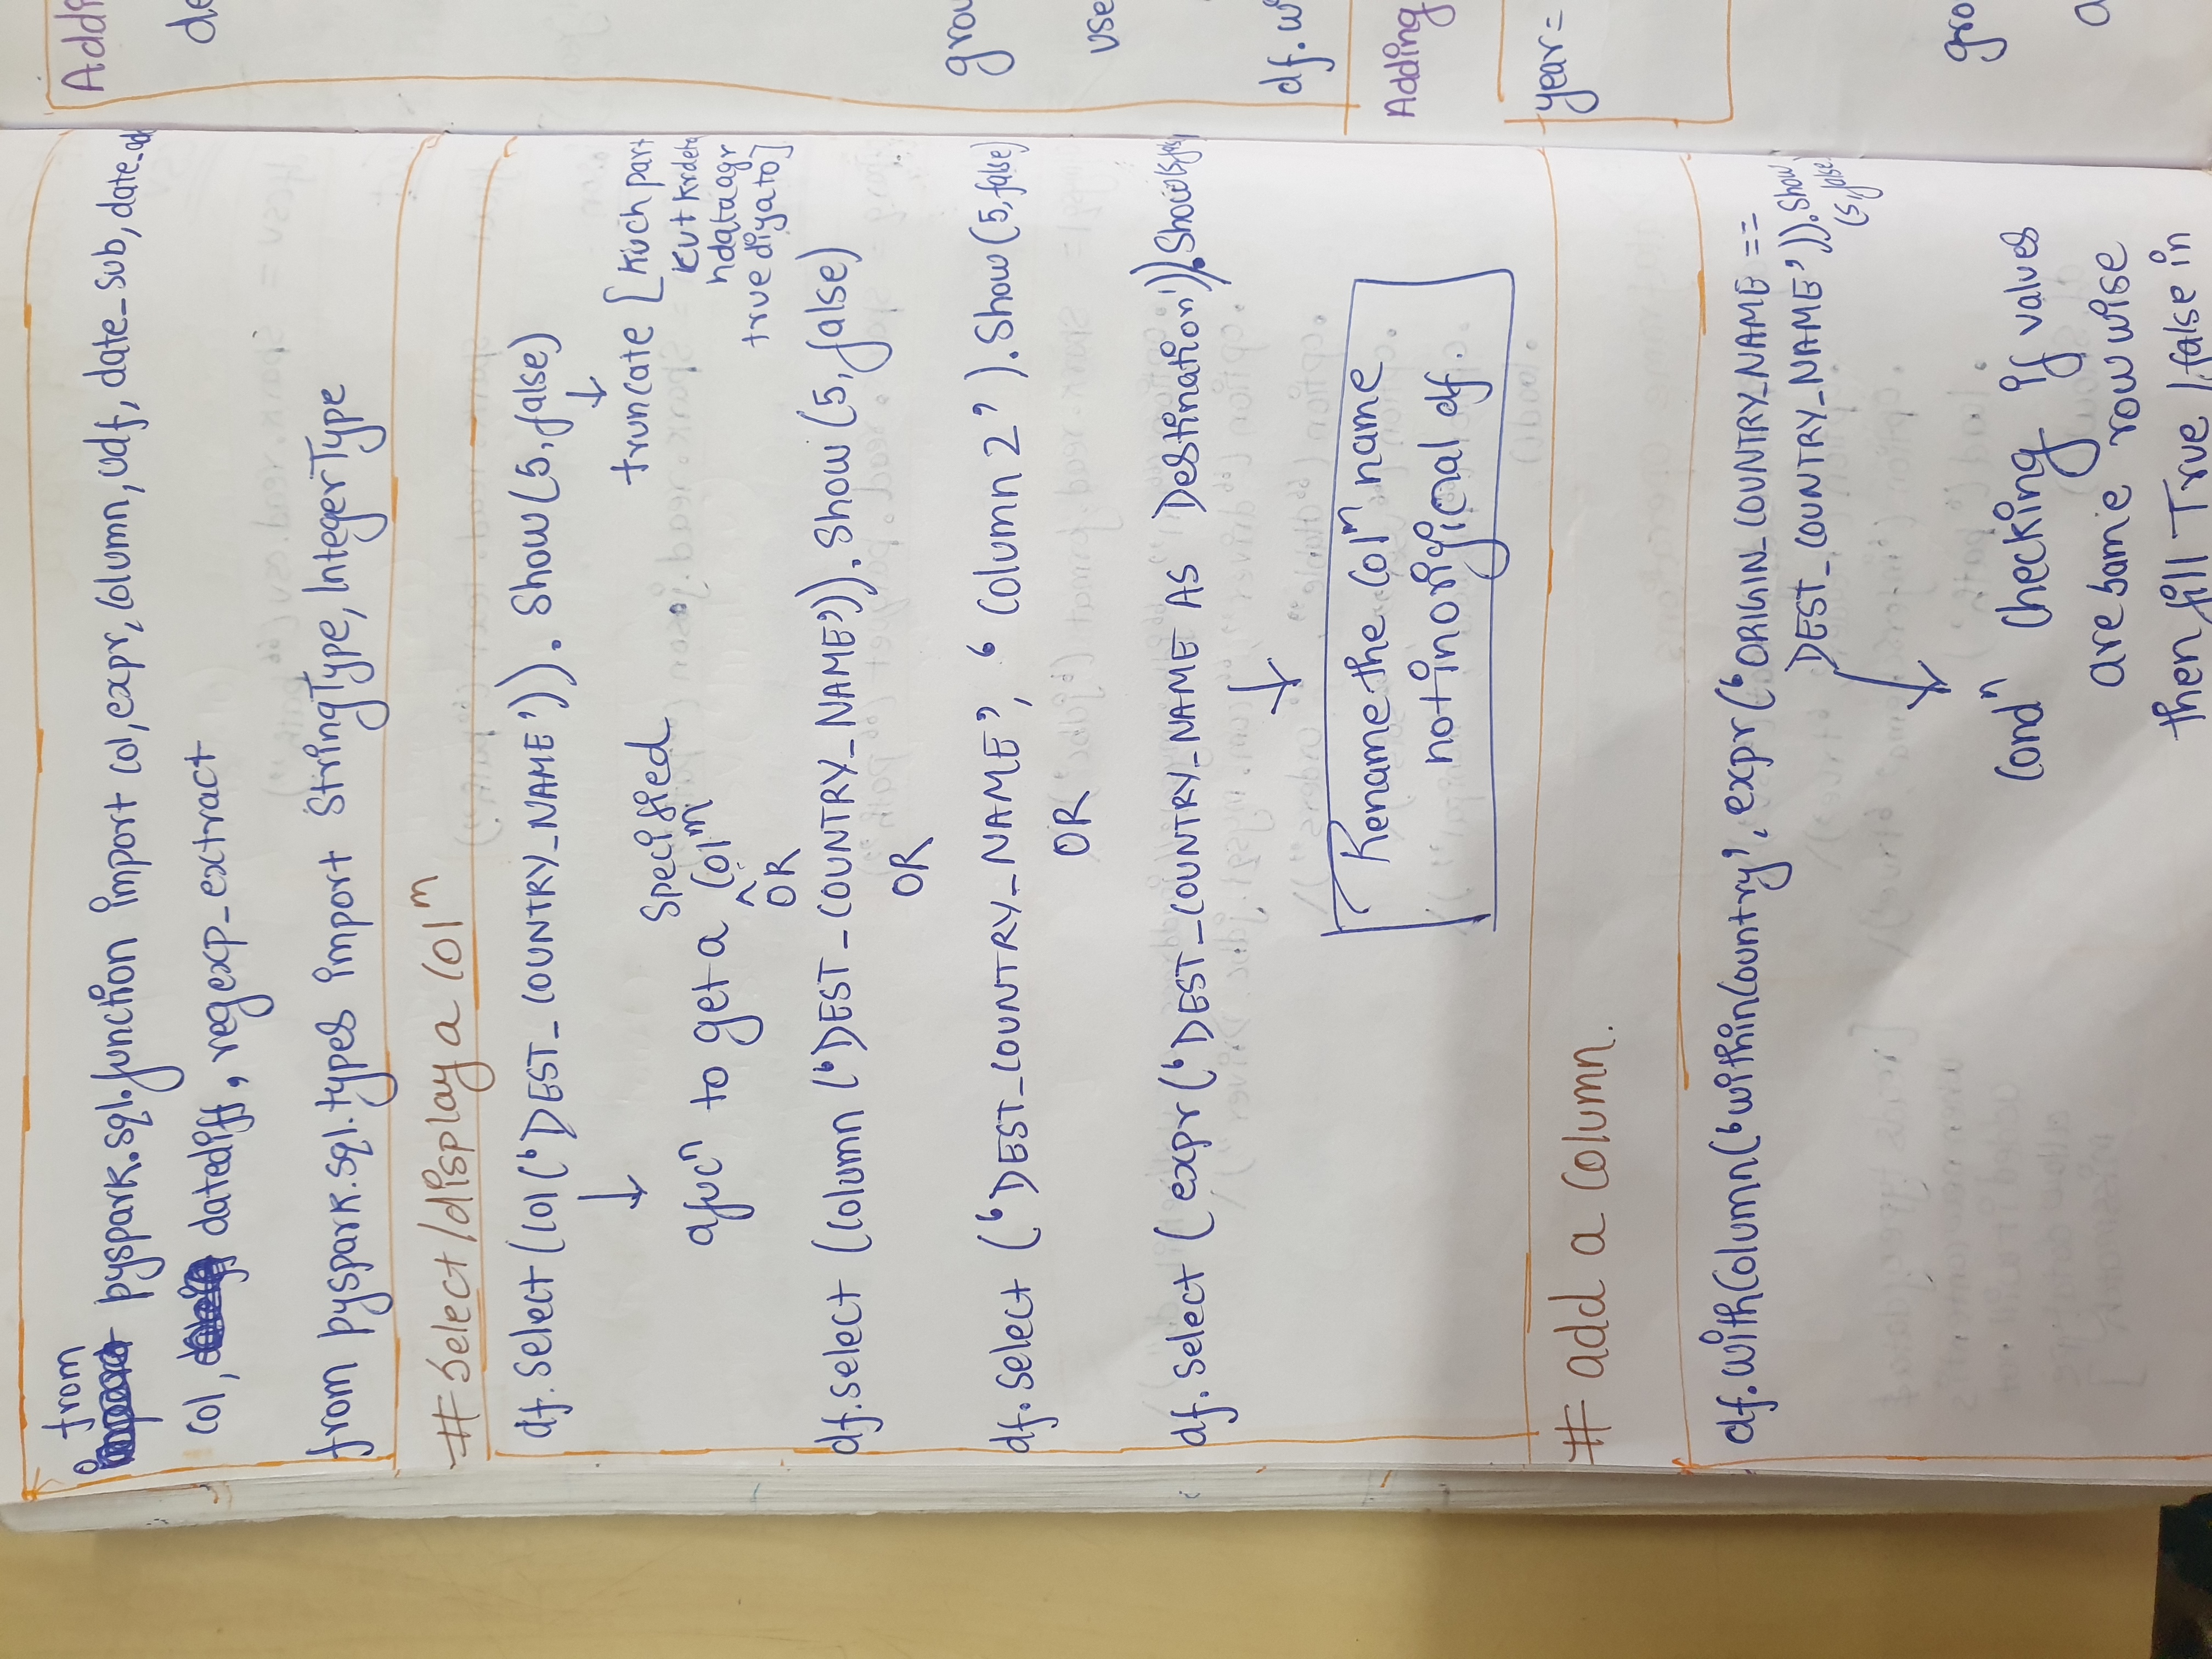 from
pyspark.sql.function import col, expr, column, udf, date_sub, date_add
col, datediff, regexp_extract
from pyspark.sql.types import StringType, IntegerType
# Select/display a colᵐ
df.select(col('DEST_COUNTRY_NAME')).show(5,false)
↓ ↓
a fucⁿ to get a specified colᵐ
truncate [kuch part
kut krdeta
h data agr
true diya to]
OR
df.select(column('DEST_COUNTRY_NAME')).show(5,false)
OR
df.select('DEST_COUNTRY_NAME', 'column 2').show(5,false)
OR
df.select(expr('DEST_COUNTRY_NAME AS Destination')).show(5,false)
↓
Rename the colᵐ name
not in original df.
# add a column.
df.withColumn('withinCountry', expr('ORIGIN_COUNTRY_NAME ==
DEST_COUNTRY_NAME')).show
(5,false)
↓
condⁿ checking if values
are same row wise
then fill True / false in
Addi
de
grou
use
df.wi
Adding
year=
gro
a